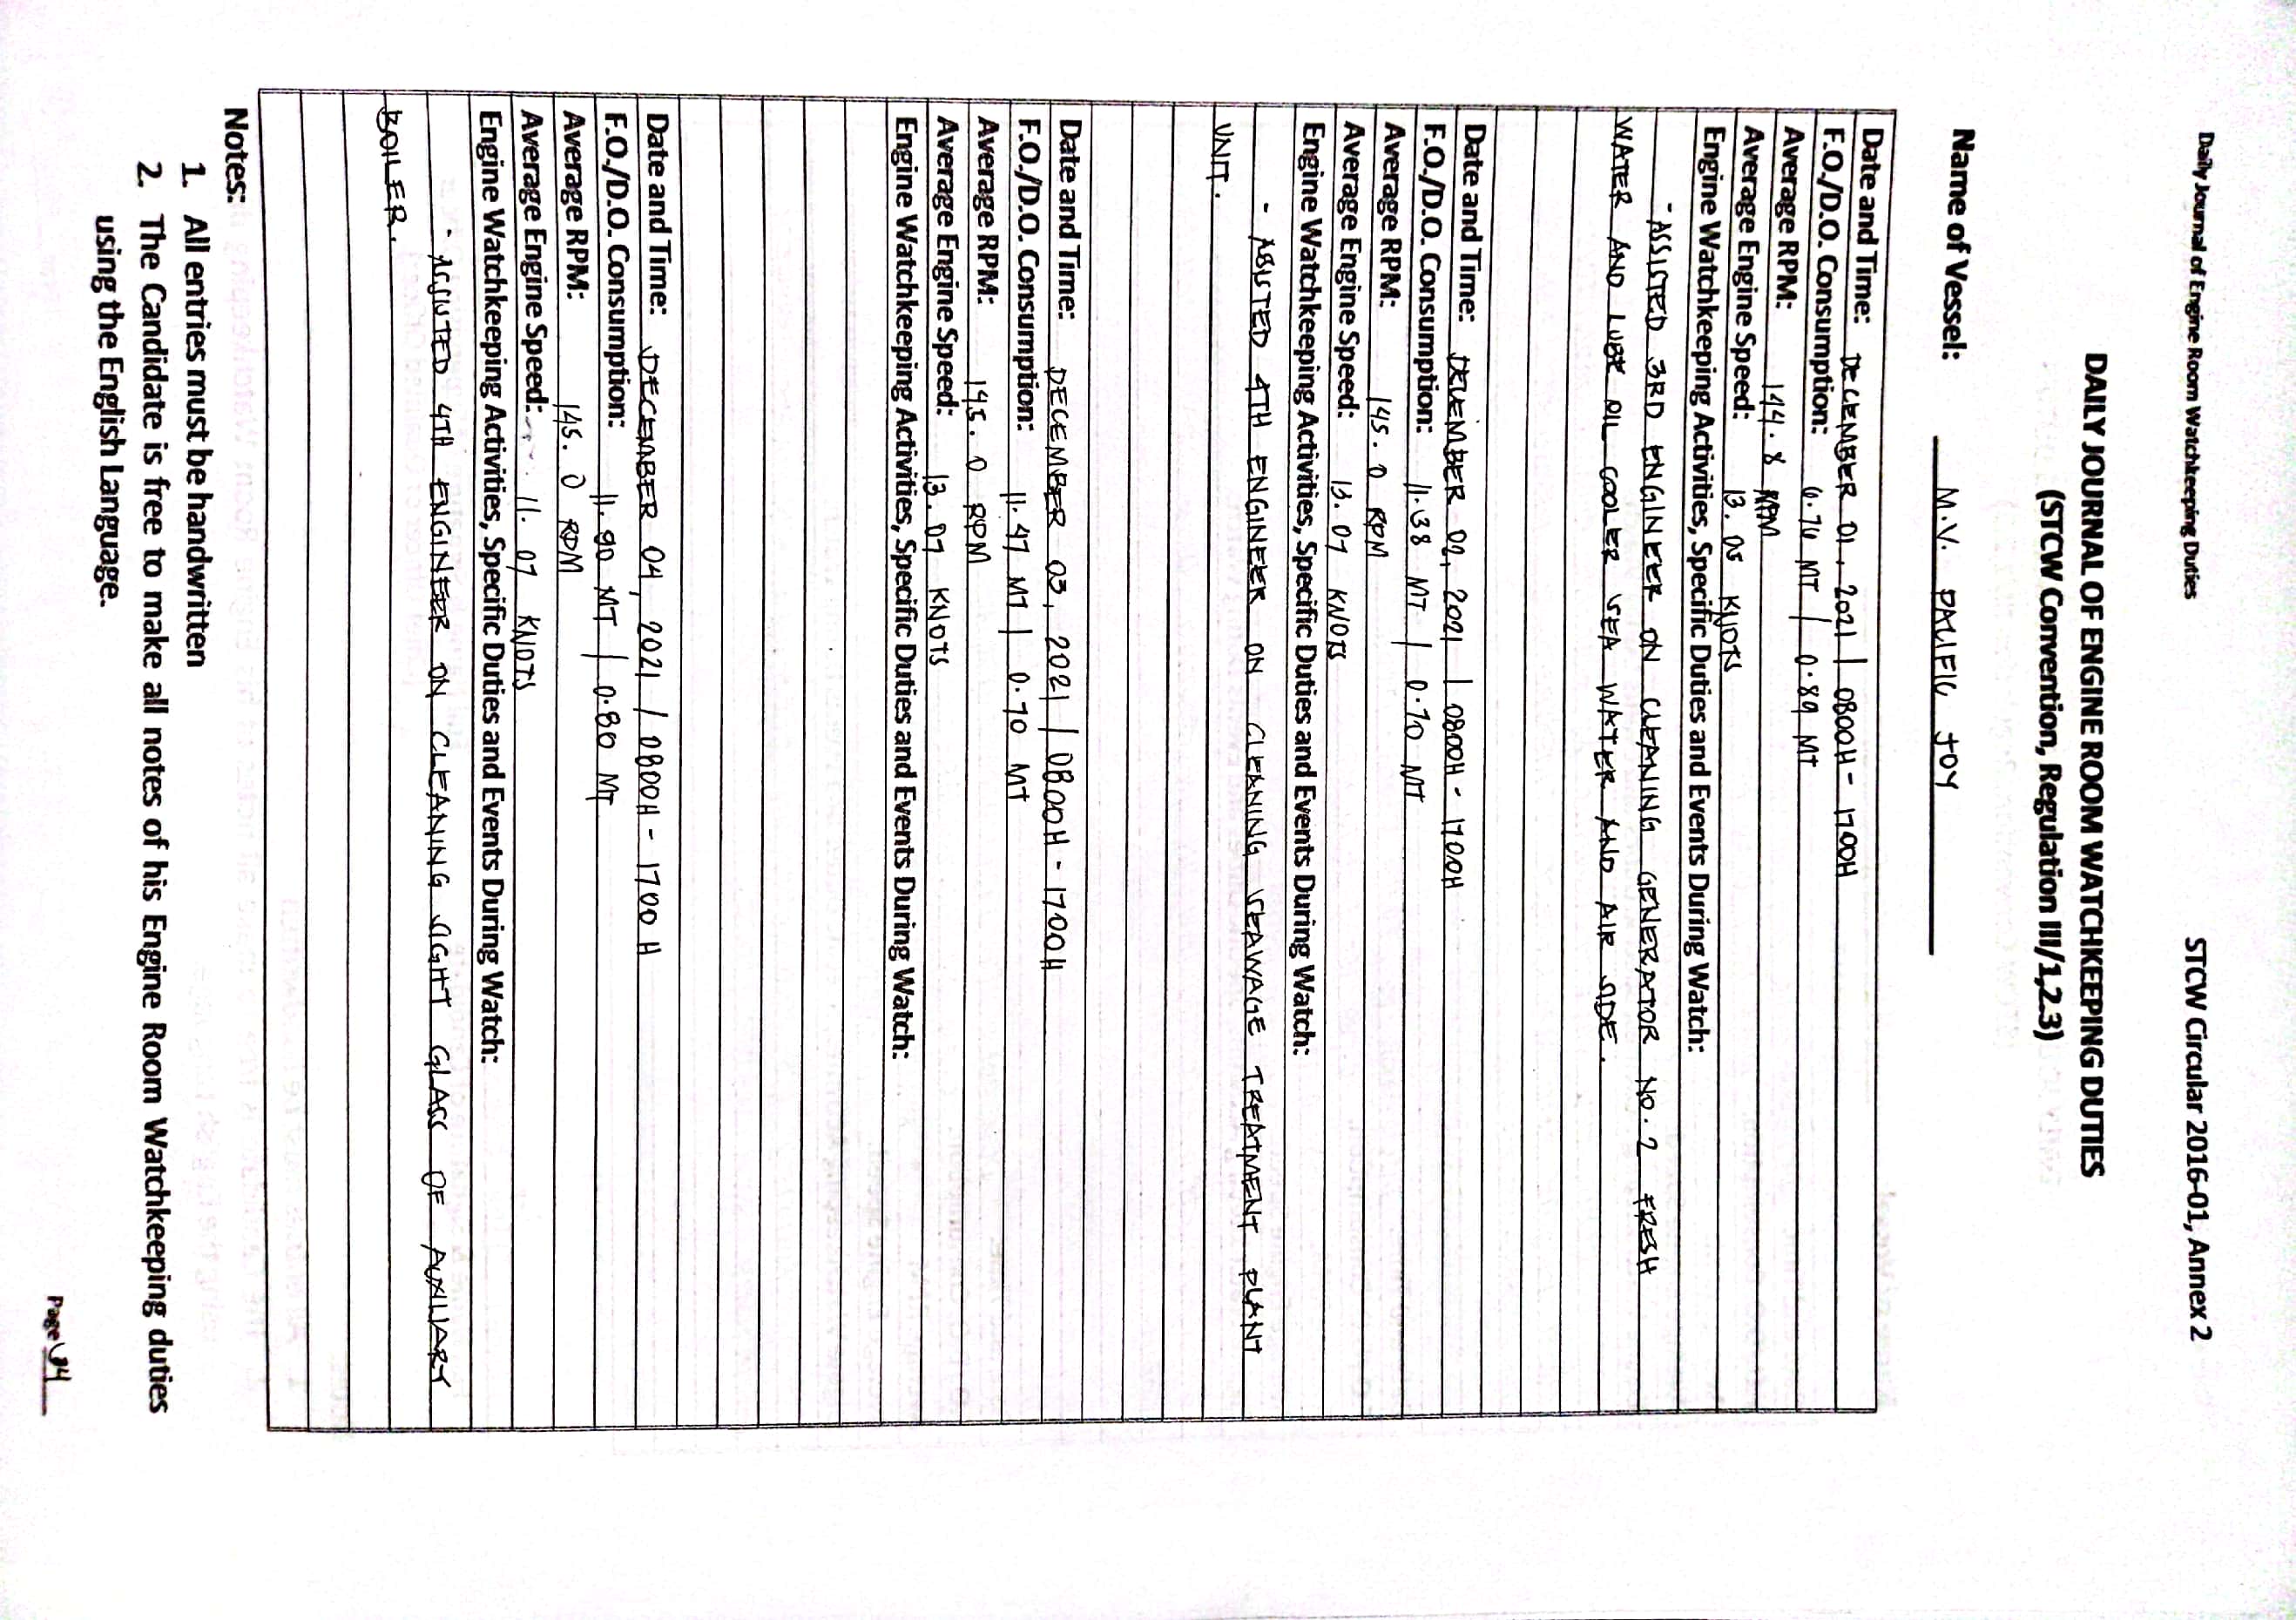 Daily Journal of Engine Room Watchkeeping Duties STCW Circular 2016-01, Annex 2
DAILY JOURNAL OF ENGINE ROOM WATCHKEEPING DUTIES
(STCW Convention, Regulation III/1,2,3)
Name of Vessel: M.V. PACIFIC JOY
Date and Time: DECEMBER 01, 2021 / 0800H - 1700H
F.O./D.O. Consumption: 6.76 MT / 0.89 MT
Average RPM: 144.8 RPM
Average Engine Speed: 13.05 KNOTS
Engine Watchkeeping Activities, Specific Duties and Events During Watch:
- ASSISTED 3RD ENGINEER ON CLEANING GENERATOR NO. 2 FRESH
WATER AND LUBE OIL COOLER SEA WATER AND AIR SIDE.
Date and Time: DECEMBER 02, 2021 / 0800H - 1700H
F.O./D.O. Consumption: 11.38 MT / 0.70 MT
Average RPM: 145.0 RPM
Average Engine Speed: 13.07 KNOTS
Engine Watchkeeping Activities, Specific Duties and Events During Watch:
- ASISTED 4TH ENGINEER ON CLEANING SEAWAGE TREATMENT PLANT
UNIT.
Date and Time: DECEMBER 03, 2021 / 0800H - 1700H
F.O./D.O. Consumption: 11.47 MT / 0.70 MT
Average RPM: 145.0 RPM
Average Engine Speed: 13.07 KNOTS
Engine Watchkeeping Activities, Specific Duties and Events During Watch:
Date and Time: DECEMBER 04, 2021 / 0800H - 1700H
F.O./D.O. Consumption: 11.90 MT / 0.80 MT
Average RPM: 145.0 RPM
Average Engine Speed: 11.07 KNOTS
Engine Watchkeeping Activities, Specific Duties and Events During Watch:
- ASSISTED 4TH ENGINEER ON CLEANING SIGHT GLASS OF AUXILIARY
BOILER.
Notes:
1. All entries must be handwritten
2. The Candidate is free to make all notes of his Engine Room Watchkeeping duties
using the English Language.
Page